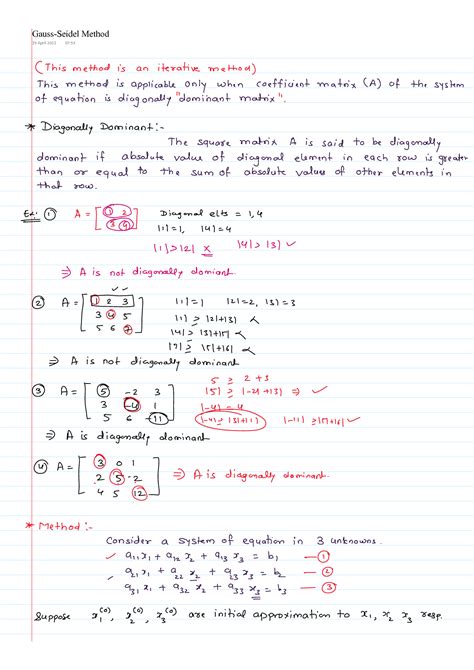 Gauss-Seidel Method
(This method is an iterative method)
This method is applicable only when coefficient matrix (A) of the system
of equation is diagonally "dominant matrix".
* Diagonally Dominant:-
The square matrix A is said to be diagonally
dominant if absolute value of diagonal element in each row is greater
than or equal to the sum of absolute values of other elements in
that row.
Ex:- ① A = [ 1 2 Diagonal elts = 1, 4
3 4 ] |1| = 1, |4| = 4
|1| > |2| x |4| > |3| ✓
⇒ A is not diagonally domiant.
✓ ✓
② A = [ 1 2 3 |1| = 1 |2| = 2, |3| = 3
3 4 5 |1| ≥ |2|+|3|
5 6 7 ] |4| ≥ |3|+|5|
|7| ≥ |5|+|6|
⇒ A is not diagonally dominant
5 ≥ 2 + 3
③ A = [ 5 -2 3 |5| ≥ |-2|+|3|) ⇒ ✓
3 -4 1 |-4| - 4
5 6 -11 ] |-4| ≥ |3|+|1| |-11| ≥ |5|+|6| ✓
⇒ A is diagonally dominant
④ A = [ 3 0 1
2 5 -2 ⇒ A is diagonally dominant.
4 5 12 ]
* Method :-
Consider a system of equation in 3 unknowns.
✓ a₁₁x₁ + a₁₂x₂ + a₁₃x₃ = b₁ — ①
✓ a₂₁x₁ + a₂₂x₂ + a₂₃x₃ = b₂ — ②
a₃₁x₁ + a₃₂x₂ + a₃₃x₃ = b₃ — ③
Suppose x₁⁽⁰⁾, x₂⁽⁰⁾, x₃⁽⁰⁾ are initial approximation to x₁, x₂ x₃ resp.